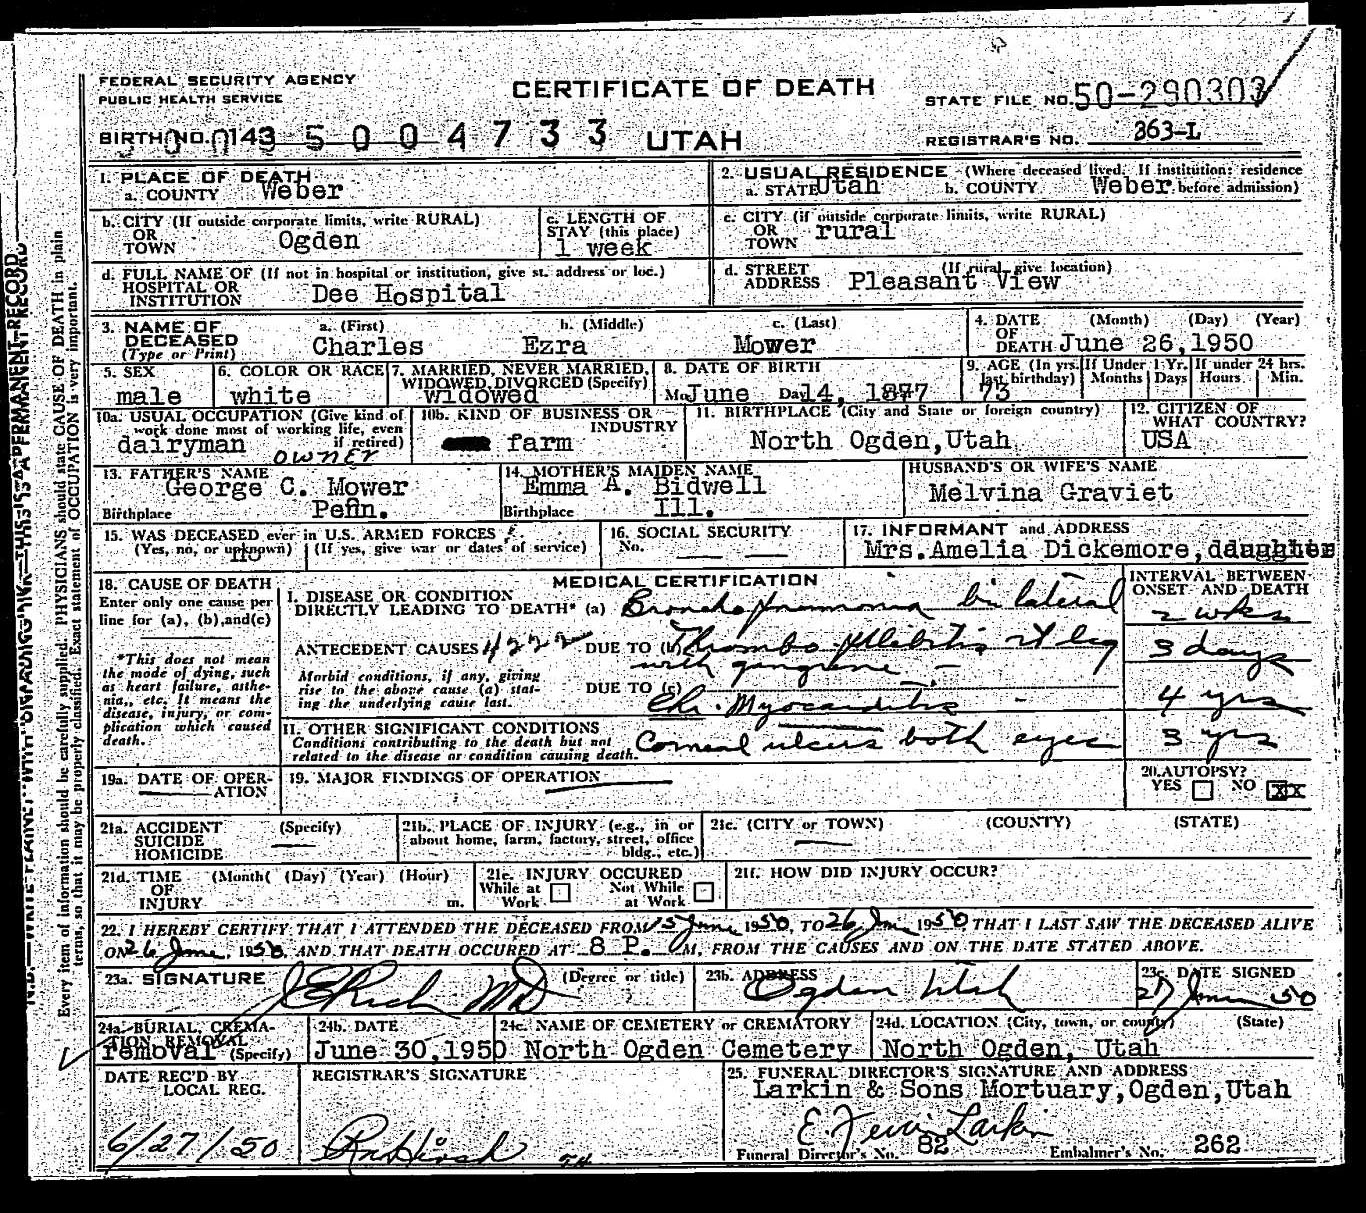 FEDERAL SECURITY AGENCY
PUBLIC HEALTH SERVICE
CERTIFICATE OF DEATH
STATE FILE NO. 50-290303
BIRTH NO. 0143 5004733 UTAH
REGISTRAR'S NO. 363-L
1. PLACE OF DEATH
a. COUNTY Weber
2. USUAL RESIDENCE (Where deceased lived. If institution: residence
a. STATE Utah b. COUNTY Weber before admission)
b. CITY (If outside corporate limits, write RURAL)
OR
TOWN Ogden
c. LENGTH OF
STAY (this place)
1 week
c. CITY (if outside corporate limits, write RURAL)
OR
TOWN rural
d. FULL NAME OF (If not in hospital or institution, give st. address or loc.)
HOSPITAL OR
INSTITUTION Dee Hospital
d. STREET (If rural give location)
ADDRESS Pleasant View
3. NAME OF
DECEASED
(Type or Print)
a. (First) b. (Middle) c. (Last)
Charles Ezra Mower
4. DATE (Month) (Day) (Year)
OF
DEATH June 26,1950
5. SEX
male
6. COLOR OR RACE
white
7. MARRIED, NEVER MARRIED,
WIDOWED, DIVORCED (Specify)
widowed
8. DATE OF BIRTH
Mo June Day 14, 1877
9. AGE (In yrs. last birthday)
73
If Under 1 Yr.
Months Days
If under 24 hrs.
Hours Min.
10a. USUAL OCCUPATION (Give kind of
work done most of working life, even
if retired)
dairyman
owner
10b. KIND OF BUSINESS OR
INDUSTRY
farm
11. BIRTHPLACE (City and State or foreign country)
North Ogden,Utah
12. CITIZEN OF
WHAT COUNTRY?
USA
13. FATHER'S NAME
George C. Mower
Birthplace Penn.
14. MOTHER'S MAIDEN NAME
Emma A. Bidwell
Birthplace Ill.
HUSBAND'S OR WIFE'S NAME
Melvina Graviet
15. WAS DECEASED ever in U.S. ARMED FORCES
(Yes, no, or unknown) (If yes, give war or dates of service)
no
16. SOCIAL SECURITY
No.
17. INFORMANT and ADDRESS
Mrs.Amelia Dickemore,daughter
18. CAUSE OF DEATH
Enter only one cause per
line for (a), (b),and(c)
*This does not mean
the mode of dying, such
as heart failure, asthe-
nia,, etc. It means the
disease, injury, or com-
plication which caused
death.
MEDICAL CERTIFICATION
INTERVAL BETWEEN
ONSET AND DEATH
I. DISEASE OR CONDITION
DIRECTLY LEADING TO DEATH* (a) Broncho pneumonia bi lateral 2 wks
ANTECEDENT CAUSES 4222 DUE TO (b) Thrombo phlebitis rt leg 3 days
with gangrene
Morbid conditions, if any, giving
rise to the above cause (a) stat-
ing the underlying cause last.
DUE TO (c) Chr. Myocarditis 4 yrs
II. OTHER SIGNIFICANT CONDITIONS
Conditions contributing to the death but not
related to the disease or condition causing death.
Corneal ulcers both eyes 3 yrs
19a. DATE OF OPER-
ATION
19. MAJOR FINDINGS OF OPERATION
20.AUTOPSY?
YES NO XX
21a. ACCIDENT (Specify)
SUICIDE
HOMICIDE
21b. PLACE OF INJURY (e.g., in or
about home, farm, factory, street, office
bldg., etc.)
21c. (CITY or TOWN) (COUNTY) (STATE)
21d. TIME (Month( (Day) (Year) (Hour)
OF
INJURY m.
21e. INJURY OCCURED
While at Work Not While at Work
21f. HOW DID INJURY OCCUR?
22. I HEREBY CERTIFY THAT I ATTENDED THE DECEASED FROM 15 June 1950, TO 26 Jun 1950 THAT I LAST SAW THE DECEASED ALIVE
ON 26 June, 1950, AND THAT DEATH OCCURED AT 8 P. M, FROM THE CAUSES AND ON THE DATE STATED ABOVE.
23a. SIGNATURE (Degree or title)
JERich MD
23b. ADDRESS
Ogden Utah
23c. DATE SIGNED
27 June 50
24a. BURIAL, CREMA-
TION, REMOVAL
removal (Specify)
24b. DATE
June 30,1950
24c. NAME OF CEMETERY or CREMATORY
North Ogden Cemetery
24d. LOCATION (City, town, or county) (State)
North Ogden, Utah
DATE REC'D BY
LOCAL REG.
6/27/50
REGISTRAR'S SIGNATURE
25. FUNERAL DIRECTOR'S SIGNATURE AND ADDRESS
Larkin & Sons Mortuary,Ogden,Utah
Larkin
Funeral Director's No. 82 Embalmer's No. 262
Every item of information should be carefully supplied. PHYSICIANS should state CAUSE OF DEATH in plain
terms, so that it may be properly classified. Exact statement of OCCUPATION is very important.